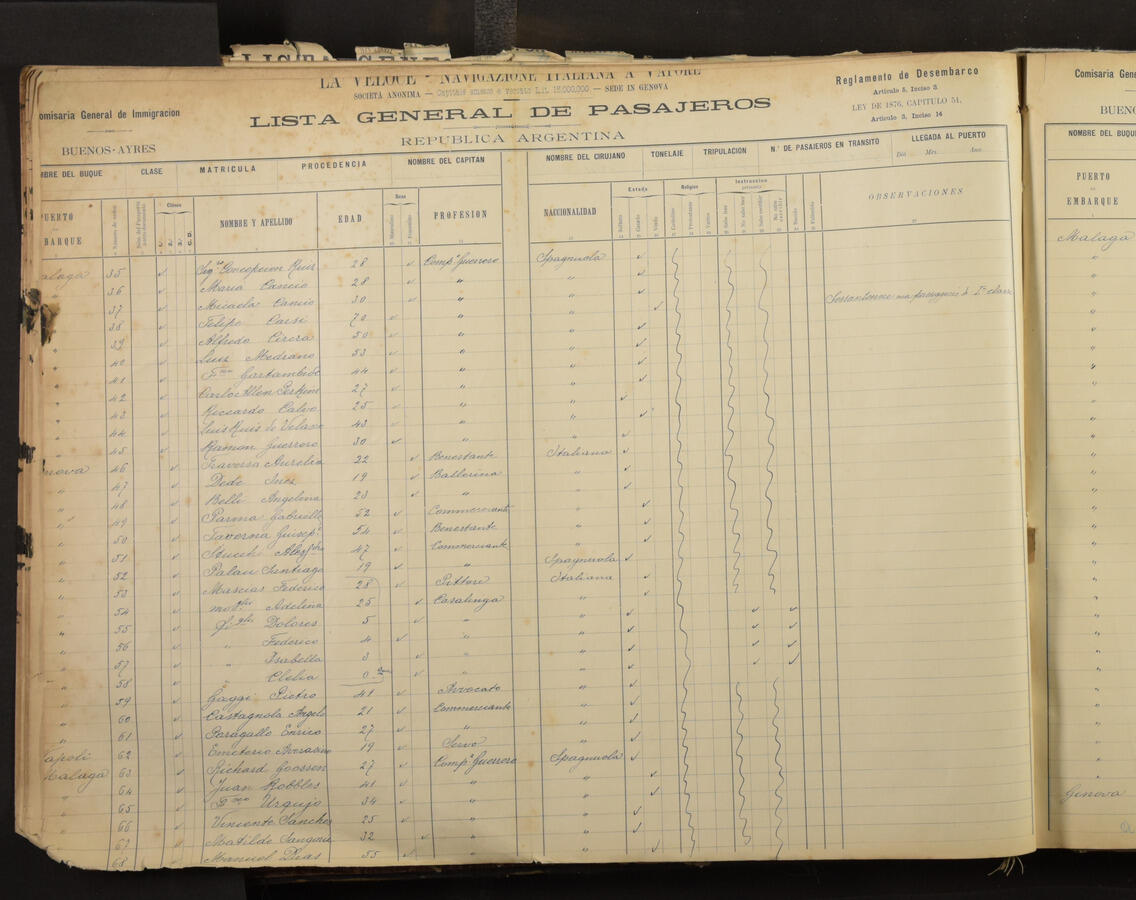 LISTA GENE
LA VELOCE - NAVIGAZIONE ITALIANA A VAPORE
SOCIETÀ ANONIMA — Capitale emesso e versato Lit. 15.000.000. — SEDE IN GENOVA
omisaria General de Inmigracion
BUENOS-AYRES
LISTA GENERAL DE PASAJEROS
REPUBLICA ARGENTINA
Reglamento de Desembarco
Articulo 5, Inciso 3
LEY DE 1876, CAPITULO 51,
Articulo 3, Inciso 14
MBRE DEL BUQUE CLASE MATRICULA PROCEDENCIA NOMBRE DEL CAPITAN NOMBRE DEL CIRUJANO TONELAJE TRIPULACION N.° DE PASAJEROS EN TRANSITO LLEGADA AL PUERTO
Dia Mes Ano
UERTO
BARQUE
Número de orden
Clases
NOMBRE Y APELLIDO
EDAD
Sexo
Masculino
Femenino
PROFESION
NACCIONALIDAD
Estado
Soltero
Casado
Viudo
Religion
Catolicos
Protestantes
Varios
Instruccion
Sabe leer
No sabe leer
Sabe escribir
No sabe escribir
OBSERVACIONES
alaga 35 Concepcion Ruis 28 Comp.a Guerrero Spagnuola
" 36 Maria Cancio 28 " "
" 37 Micaela Cancio 30 " "
" 38 Felipe Carsi 70 " "
" 39 Alfredo Cirera 50 " "
" 40 Luis Medrano 53 " "
" 41 Gastambide 44 " "
" 42 Carlo Allen Perkins 27 " "
" 43 Riccardo Calvo 25 " "
" 44 Luis Ruis de Velasco 43 " "
" 45 Ramon Guerrero 30 " "
enova 46 Traversa Aurelia 22 Benestante Italiana
" 47 Dede Ines 19 Ballerina "
" 48 Belli Angelina 23 " "
" 49 Parma Gabriella 52 Commerciante "
" 50 Taverna Guisep.e 54 Benestante "
" 51 Stucchi 47 Commerciante "
" 52 Palau Santiago 19 " Spagnuola
" 53 Mascias Federico 28 Pittore Italiana
" 54 mogle Adelina 25 Casalinga "
" 55 Dolores 5 " "
" 56 " Federico 4 " "
" 57 " Isabella 3 " "
" 58 " Clelia 0 " "
" 59 Gaggi Pietro 41 Avvocato "
" 60 Castagnola Angelo 21 Commerciante "
" 61 Paragallo Enrico 27 " "
apoli 62 Emeterio 19 Servo "
Malaga 63 Richard Goossen 27 Comp.a Guerrero Spagnuola
" 64 Juan Robbles 41 " "
" 65 Urquijo 34 " "
" 66 Vincente Sanchez 25 " "
" 67 Matilde 32 " "
68 Manuel Dias 55 " "
Comisaria Gener
BUENO
NOMBRE DEL BUQUE
PUERTO
EMBARQUE
Malaga
Genova